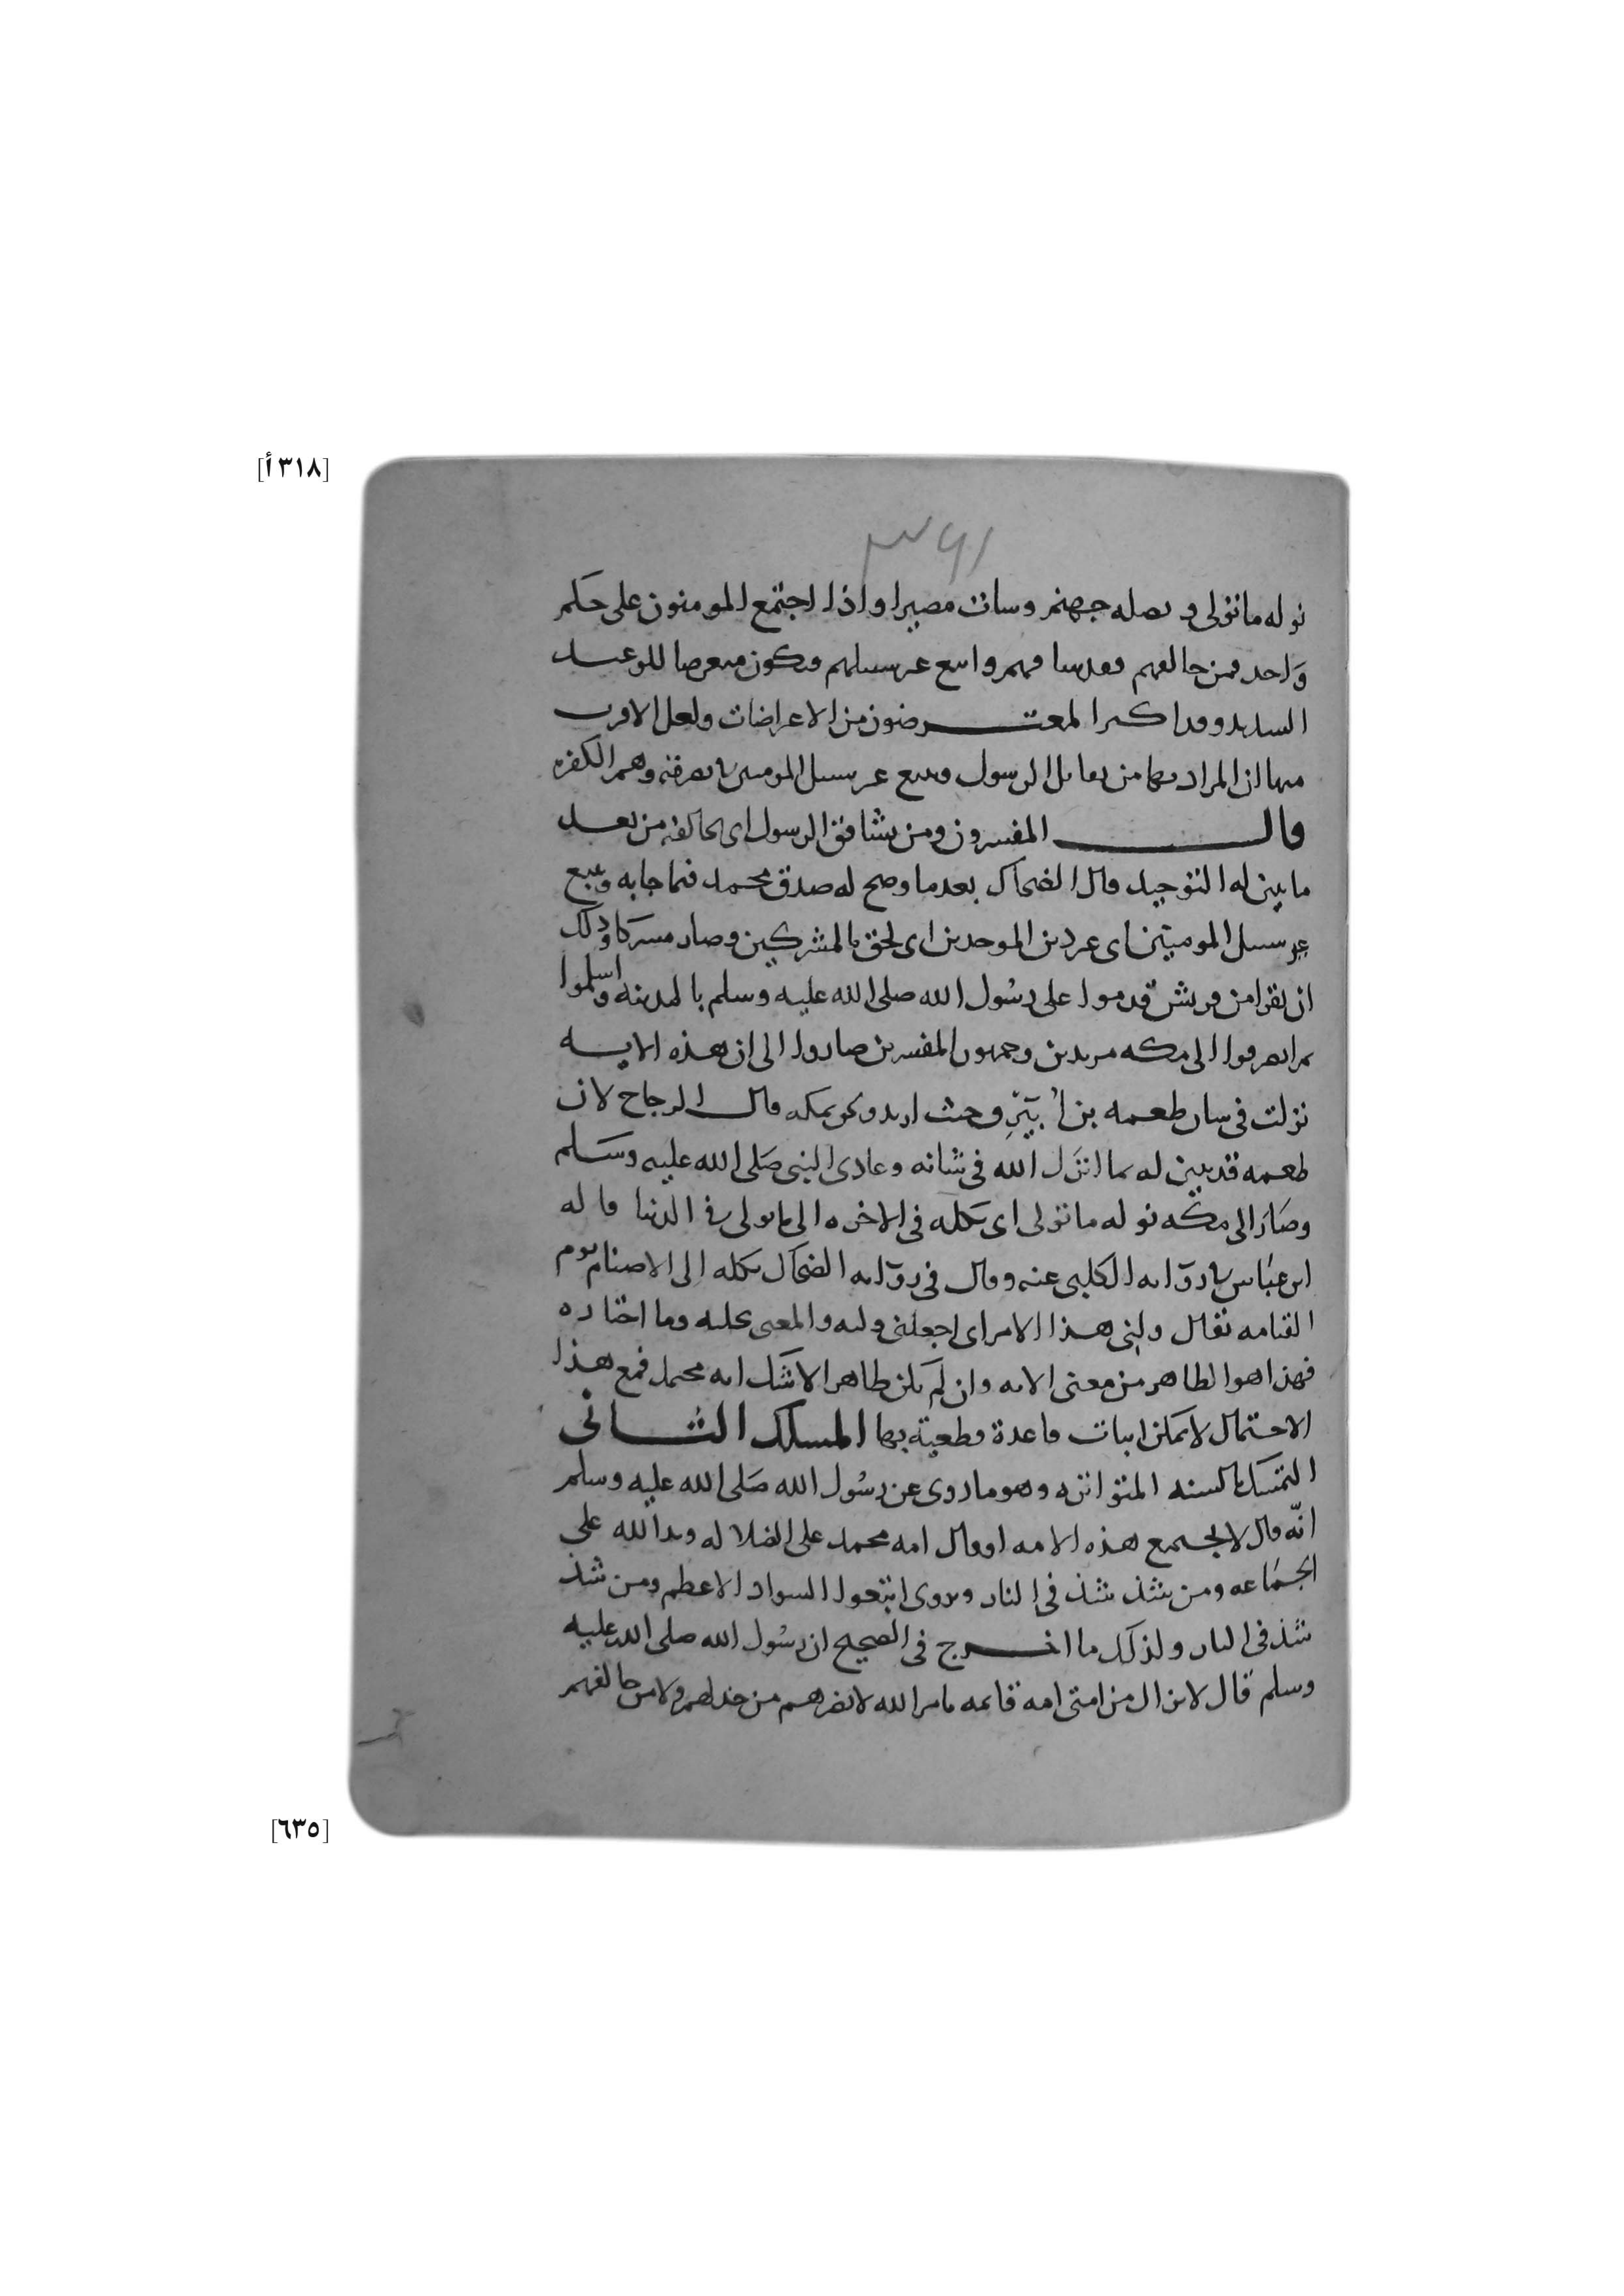 [٣١٨أ]
٣٦١
نوله ما تولى ونصله جهنم وسات مصيرا واذا اجتمع المومنون على حكم
واحد فمن خالفهم فقد شاقهم واتبع غير سبيلهم ويكون متعرضا للوعيد
الشديد وقد اكثر المعترضون من الاعتراضات ولعل الاقرب
منها ان المراد بها من يقاتل الرسول ويتبع غير سبيل المومنين في معرفته وهم الكفره
قال المفسرون ومن يشاقق الرسول اى يخالفه من بعد
ما تبين له التوحيد قال الضحاك بعدما وضح له صدق محمد فيما جا به ويتبع
غير سبيل المومنين اى غير دين الموحدين اى لحق بالمشركين وصار مشركا وذلك
ان نفرا من قريش قدموا على رسول الله صلى الله عليه وسلم بالمدينه واسلموا
ثم انصرفوا الى مكه مرتدين وجمهور المفسرين صاروا الى ان هذه الايه
نزلت فى شان طعمه بن ابيرق حيث ارتد ولحق بمكه قال الزجاج لان
طعمه قد تبين له بما انزل الله فى شانه وعادى النبى صلى الله عليه وسلم
وصار الى مكه نوله ما تولى اى نكله فى الاخره الى ما تولى فى الدنيا قاله
ابن عباس فى روايه الكلبى عنه وقال فى روايه الضحاك نكله الى الاصنام يوم
القيامه يقال ولنى هذا الامر اى اجعلنى وليه والمعنى نخليه وما اختاره
فهذا هو الظاهر من معنى الايه وان لم يكن ظاهرا لا شك انه محتمل فمع هذا
الاحتمال لا يمكن اثبات قاعدة قطعية بها المسلك الثانى
التمسك بالسنه المتواتره وهو ما روى عن رسول الله صلى الله عليه وسلم
انه قال لا تجتمع هذه الامه او قال امه محمد على الضلاله ويد الله على
الجماعه ومن شذ شذ فى النار ويروى اتبعوا السواد الاعظم ومن شذ
شذ فى النار ولذلك ما اخرج فى الصحيح ان رسول الله صلى الله عليه
وسلم قال لا يزال من امتى امه قائمه بامر الله لا يضرهم من خذلهم ولا من خالفهم
[٦٣٥]